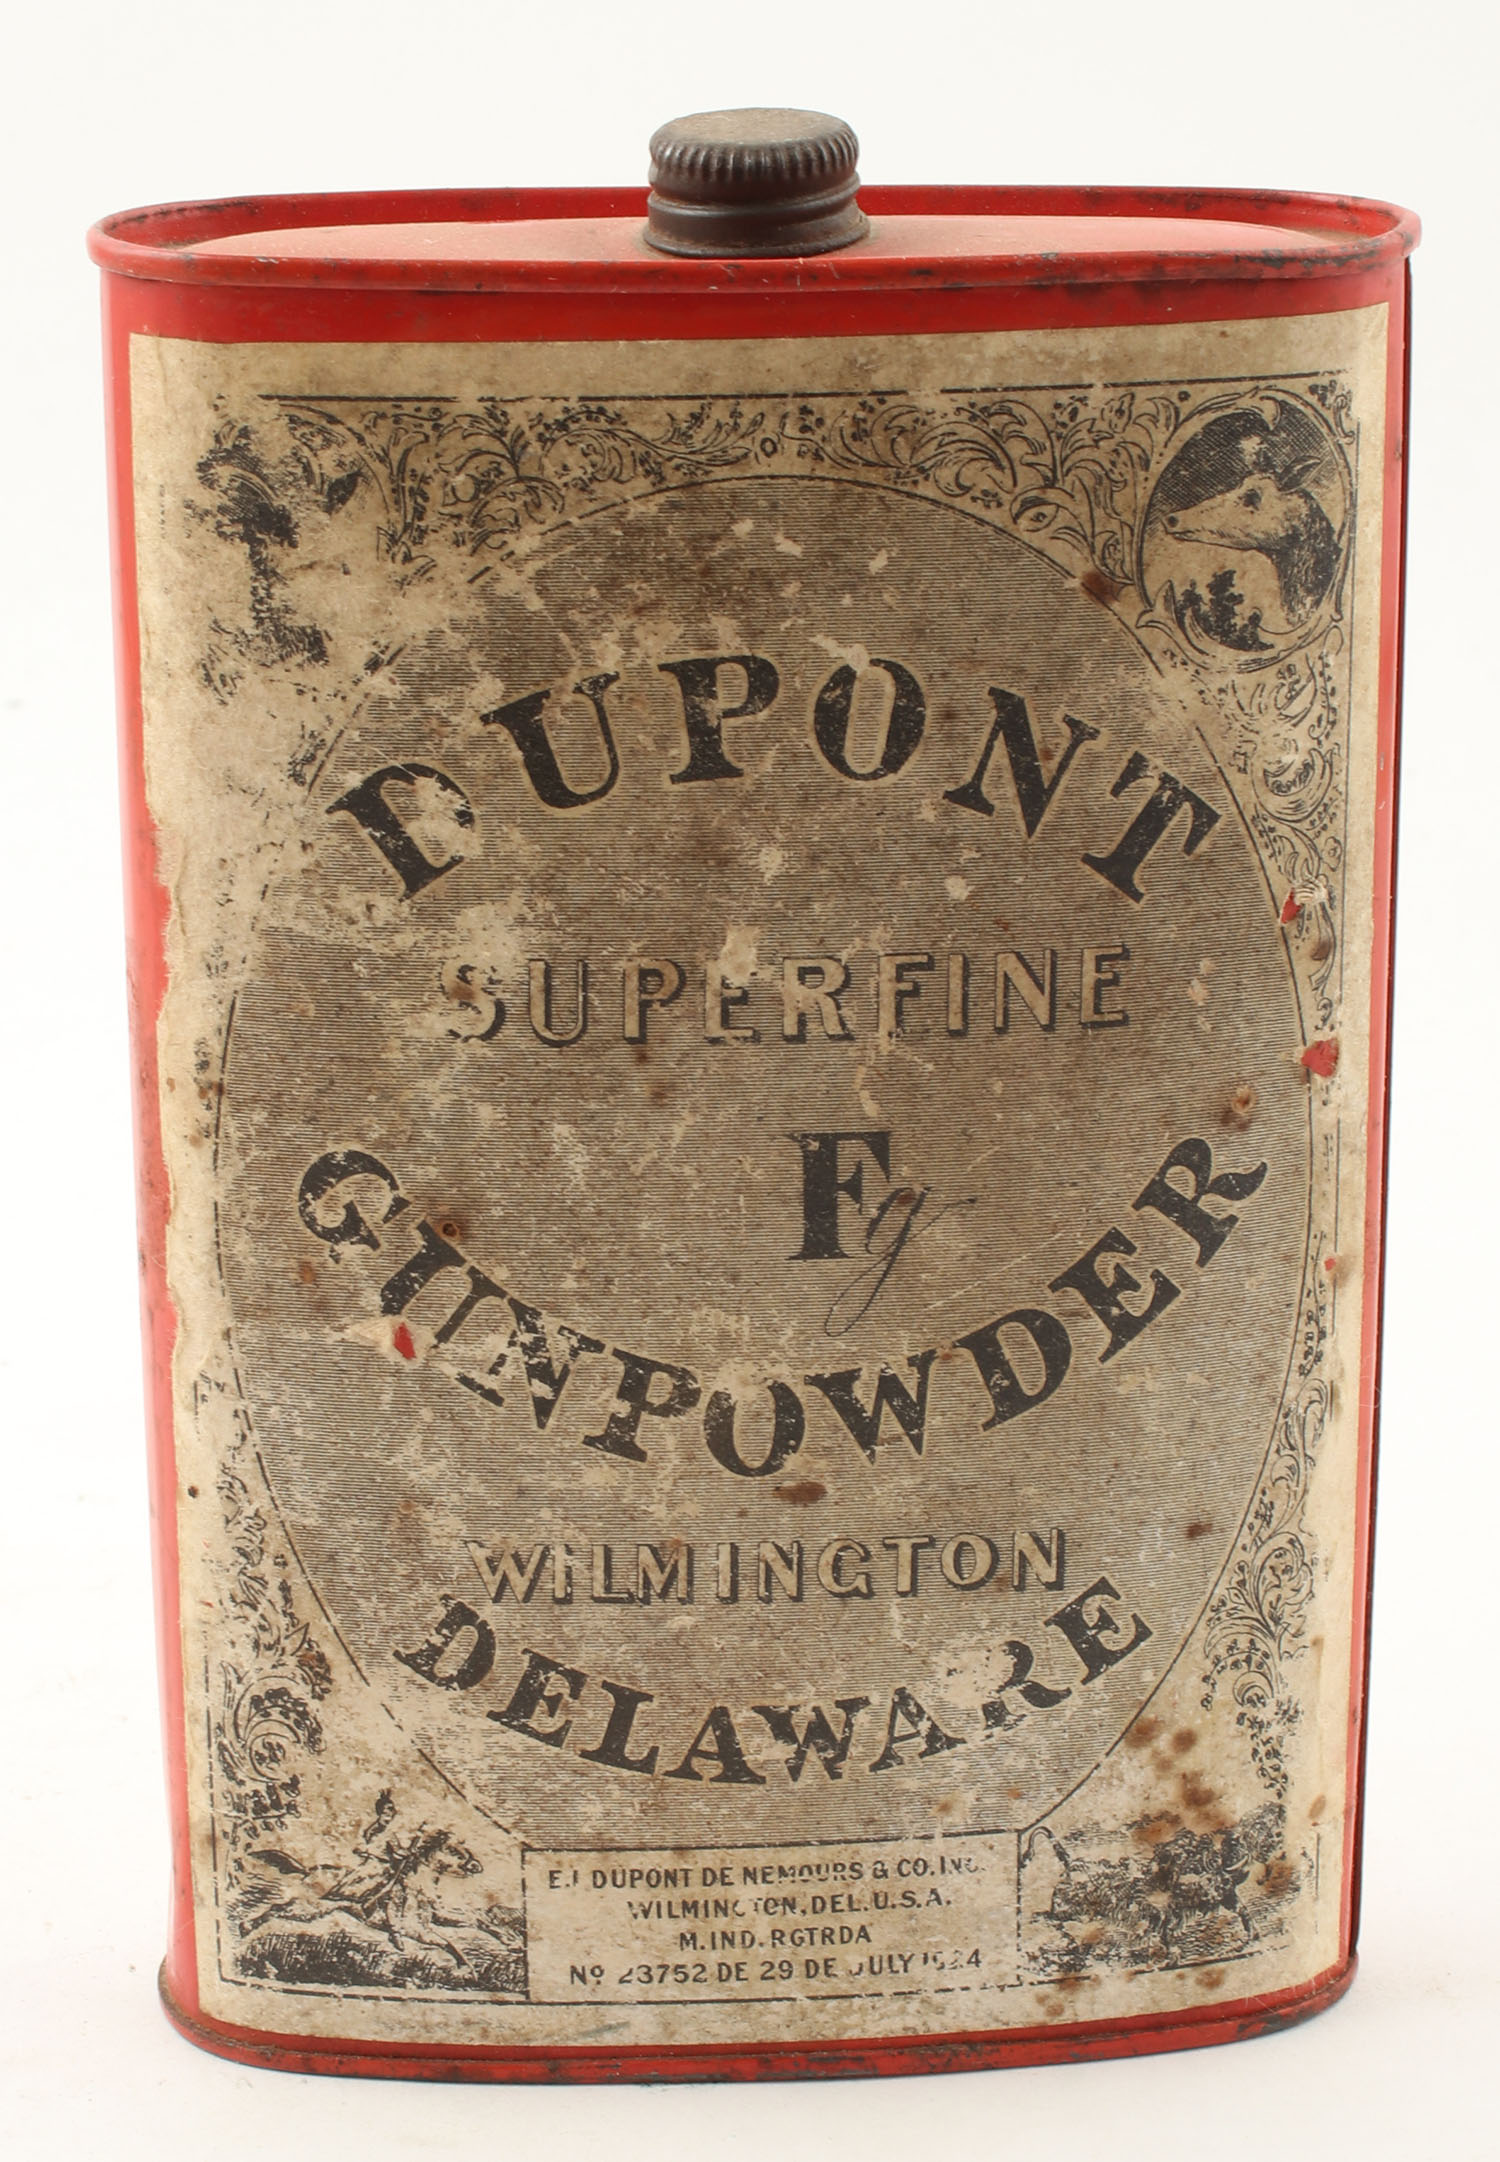 DUPONT
SUPERFINE
Fg
GUNPOWDER
WILMINGTON
DELAWARE
E.I DUPONT DE NEMOURS & CO. INC.
WILMINGTON, DEL. U.S.A.
M. IND. RGTRDA
Nº 23752 DE 29 DE JULY